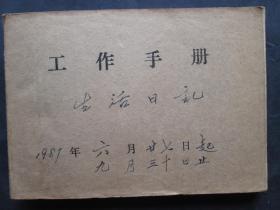 工作手册
生活日记
1987年六月廿七日起
九月三十日止